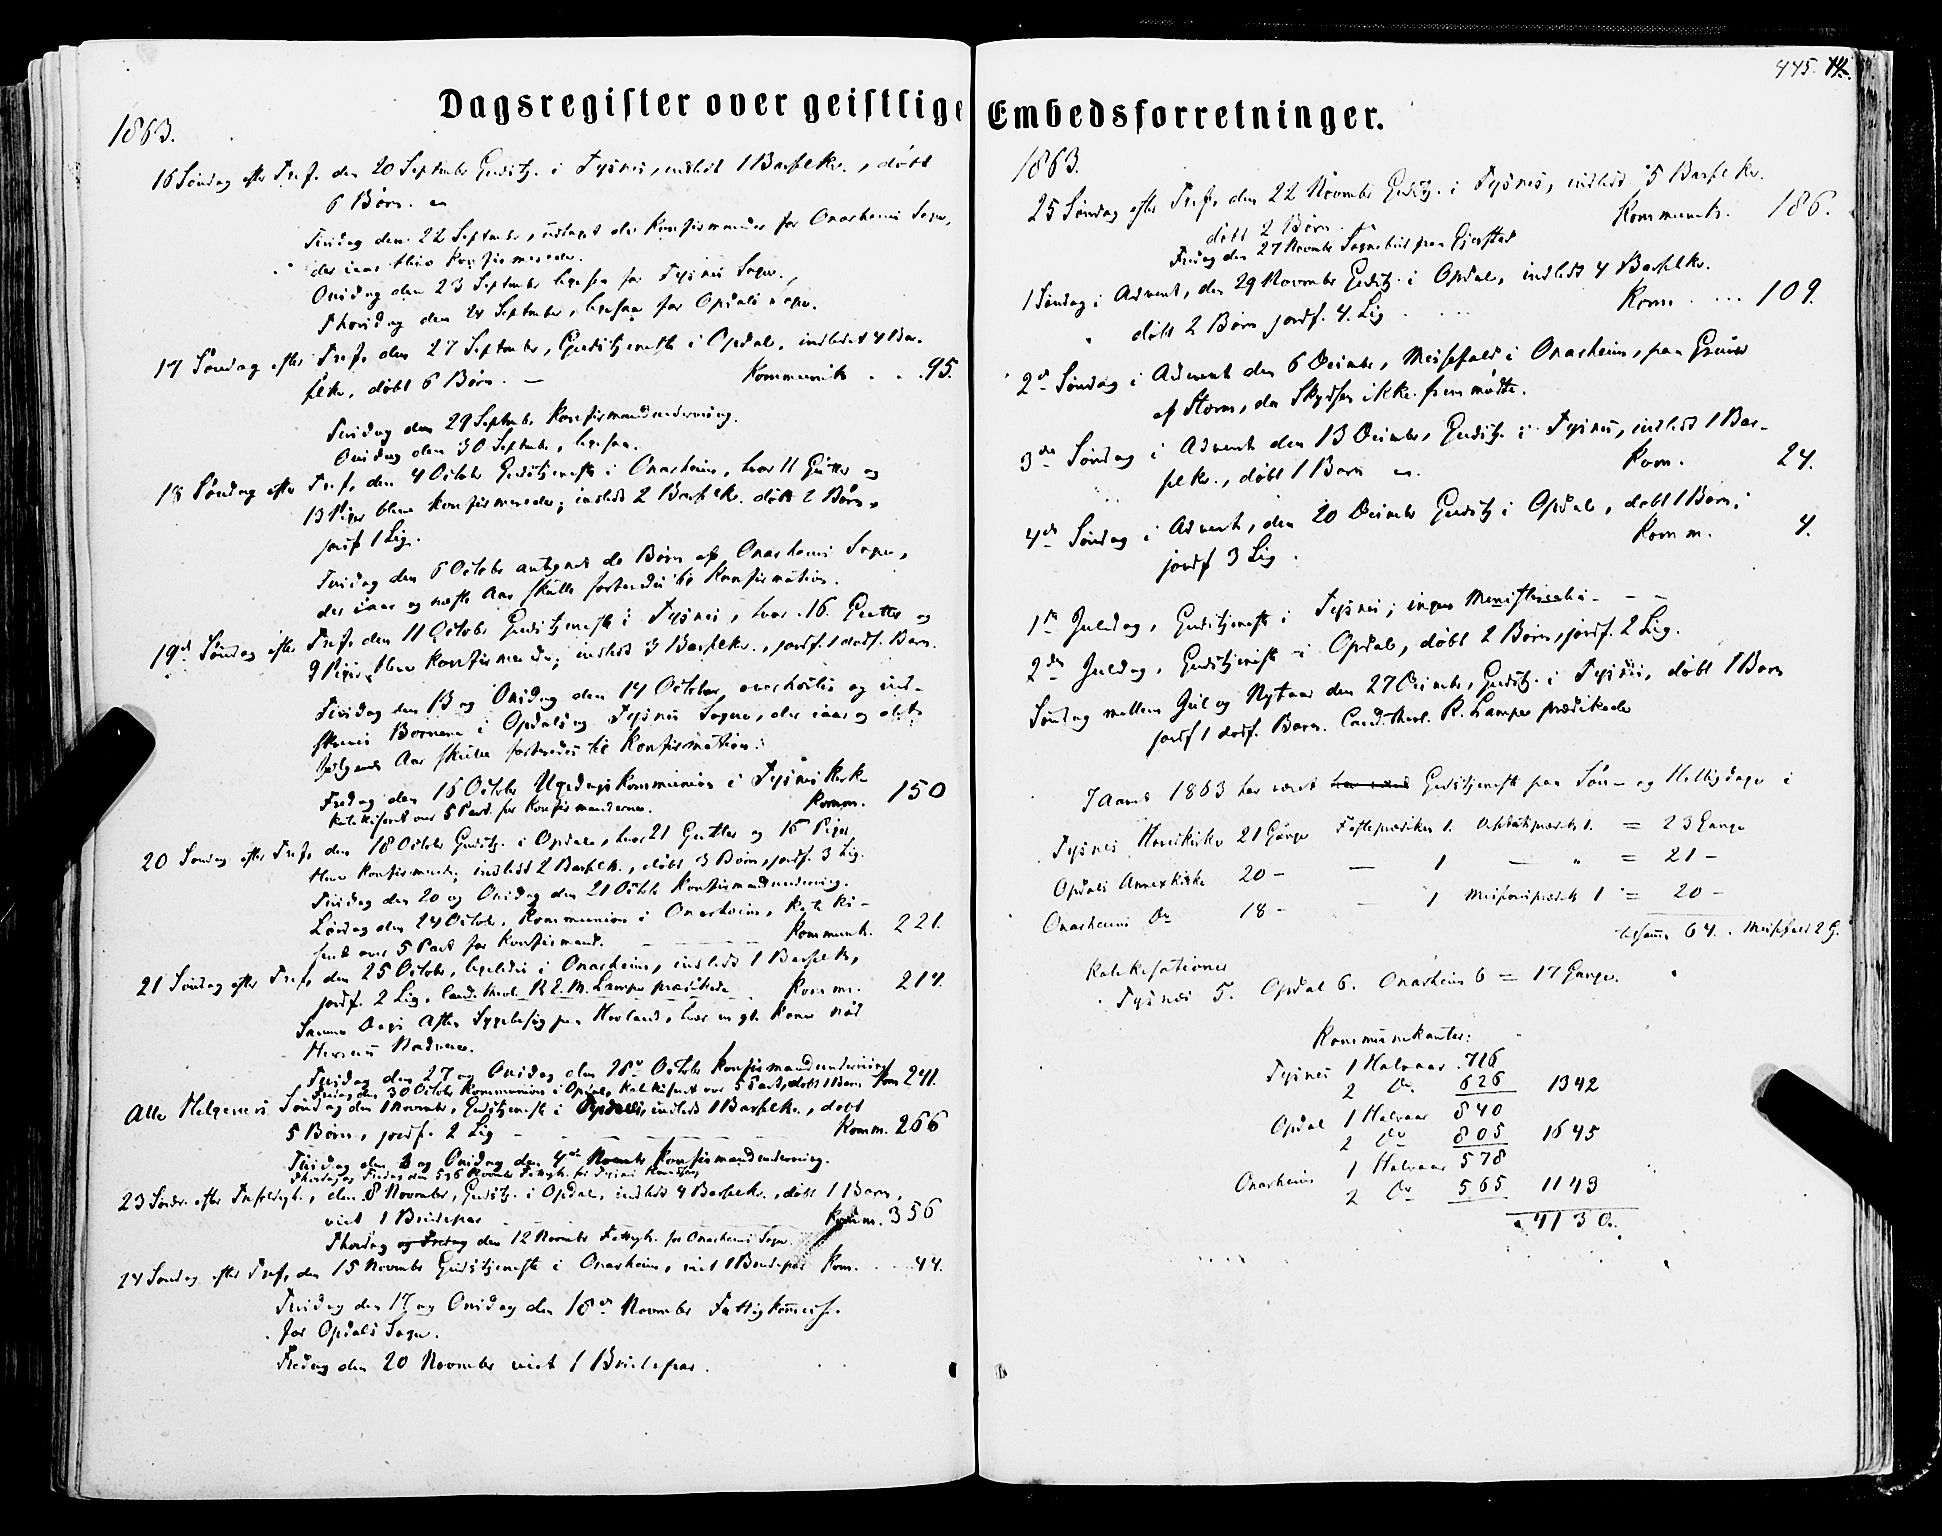 Dagsregister over geistlige Embedsforretninger.
445.
1863.
16 Søndag efter Tref. den 20 September Gudstj. i Tysnes, indledt 1 Barselkv., døbt
6 Børn.
Tirsdag den 22 September, udtaget de Konfirmander for Onarheims Sogn,
der iaar blive Konfirmerede.
Onsdag den 23 September ligesaa for Tysnes Sogn.
Thorsdag den 24 September, ligesaa for Opdals Sogn.
17 Søndag efter Tref. den 27 September, Gudstjeneste i Opdal, indledet 4 Bar-
selkv., døbt 6 Børn. — Kommunik. . . 95.
Tirsdag den 29 September Konfirmandundervisning.
Onsdag den 30 September, ligesaa.
18 Søndag efter Tref. den 4 October Gudstjeneste i Onarheim, hvor 11 Gutter og
13 Piger bleve Konfirmerede; indledt 2 Barselkv. døbt 2 Børn,
jordf 1 Lig.
Tirsdag den 6 October antegnet de Børn af Onarheims Sogn,
der iaar og næste Aar skulle forberedes til Konfirmation.
19de Søndag efter Tref. den 11 October Gudstjeneste i Tysnes, hvor 16 Gutter og
9 Piger bleve Konfirmerede; indledt 3 Barselkv., jordf. 1 dødf. Barn.
Tirsdag den 13 og Onsdag den 14 October, overhørtes og ind-
skreves Børnene i Opdals og Tysnes Sogne, der iaar og det
følgende Aar skulle forberedes til Konfirmation.
Fredag den 16 October Ugedagskommunion i Tysnes Kirke
Katekiseret over 5 Part. for Konfirmanderne. Komm. 150
20 Søndag efter Tref. den 18 October Gudstj. i Opdal, hvor 21 Gutter og 15 Piger
bleve Konfirmerede; indledt 2 Barselkv., døbt 3 Børn, jordf. 3 Lig.
Tirsdag den 20 og Onsdag den 21 Octobr Konfirmandundervisning.
Lørdag den 24 October, Kommunion i Onarheim, Kateki-
seret over 5 Part for Konfirmand. Kommunik. 221.
21 Søndag efter Tref. den 25 October, ligeledes i Onarheim, indledt 1 Barselkv,
jordf. 2 Lig. Cand. theol. R. L. M. Lampe prædikede. Komm. 214.
Samme Dags Aften Sygebesøg paa Hovland, hvor en gl. Kone nød
Herrens Nadvere.
Tirsdag den 27 og Onsdag den 28de October Konfirmandundervisning
Fredag den 30 October Kommunion i Opdal, Katekiseret over 5 Part, døbt 1 Barn Kom 241.
Alle Helgeners Søndag den 1 November, Gudstjeneste i Tysnes, indledt 1 Barselkv., døbt
5 Børn, jordf. 2 Lig — Komm. 266
Tirsdag den 3 og Onsdag den 4de Novembr Konfirmandundervisning.
Thorsdag og Fredag den 5 og 6 November Fattigk. for Tysnes
23 Sønd. efter Trefoldigh., den 8 November, Gudstj. i Opdal, indledt 4 Barselkv., døbt 1 Barn,
viet 1 Brudepar Komm. 356
Thorsdag og Fredag den 12 November Fattigk. for Onarheims Sogn.
24 Søndag efter Tref. den 15 November Gudstjeneste i Onarheim, viet 1 Brudepar Kom. . . 44.
Tirsdag den 17 og Onsdag den 18de November Fattigkommiss.
for Opdals Sogn.
Fredag den 20 November viet 1 Brudepar.
1863.
25 Søndag efter Tref. den 22 November Gudstj. i Tysnes, indledt 5 Barselkv.
døbt 2 Børn. Kommunik. 186.
Fredag den 27 November Sognebud paa Gjerstad
1 Søndag i Advent, den 29 November Gudstj. i Opdal, indledt 4 Barselkv.
døbt 2 Børn jordf. 4 Lig . . . Kom. . ... 109.
2den Søndag i Advent den 6 December, Messefald i Onarheim, paa Grund
af Storm, da Skydsen ikke fremmødte.
3die Søndag i Advent den 13 December, Gudstj. i Tysnes, indledt 1 Bar-
selkv., døbt 1 Barn Kom. 24.
4de Søndag i Advent, den 20 December Gudstj. i Opdal, døbt 1 Barn;
jordf 3 Lig. Komm. 4.
1ste Juledag, Gudstjeneste i Tysnes; ingen Ministerialia. — —
2den Juledag, Gudstjeneste i Opdal, døbt 2 Børn, jordf. 2 Lig.
Søndag mellem Jul og Nytaar den 27 December, Gudstj. i Tysnes, døbt 1 Barn
jordf 1 dødf. Barn. Cand. theol. R. Lampe prædikede
I Aaret 1863 har været Gudstjeneste paa Søn- og Helligdage i
Tysnes Hovedkirke 21 Gange Fasteprædiken 1. 1. = 23 Gange
Opdals Annexkirke 20 - — 1 — " = 21 -
Onarheims Do 18 - 1 Missionsprædik 1 = 20 -
tilsamm. 64. Messefald 2 G.
Katekisationer
Tysnes 5. Opdal 6. Onarheim 6 = 17 Gange.
Kommunikanter:
Tysnes 1 Halvaar 716
2 Do 626 1342
Opdal 1 Halvaar 840
2 Do 805 1645
Onarheim 1 Halvaar 578
2 Do 565 1143
4130.